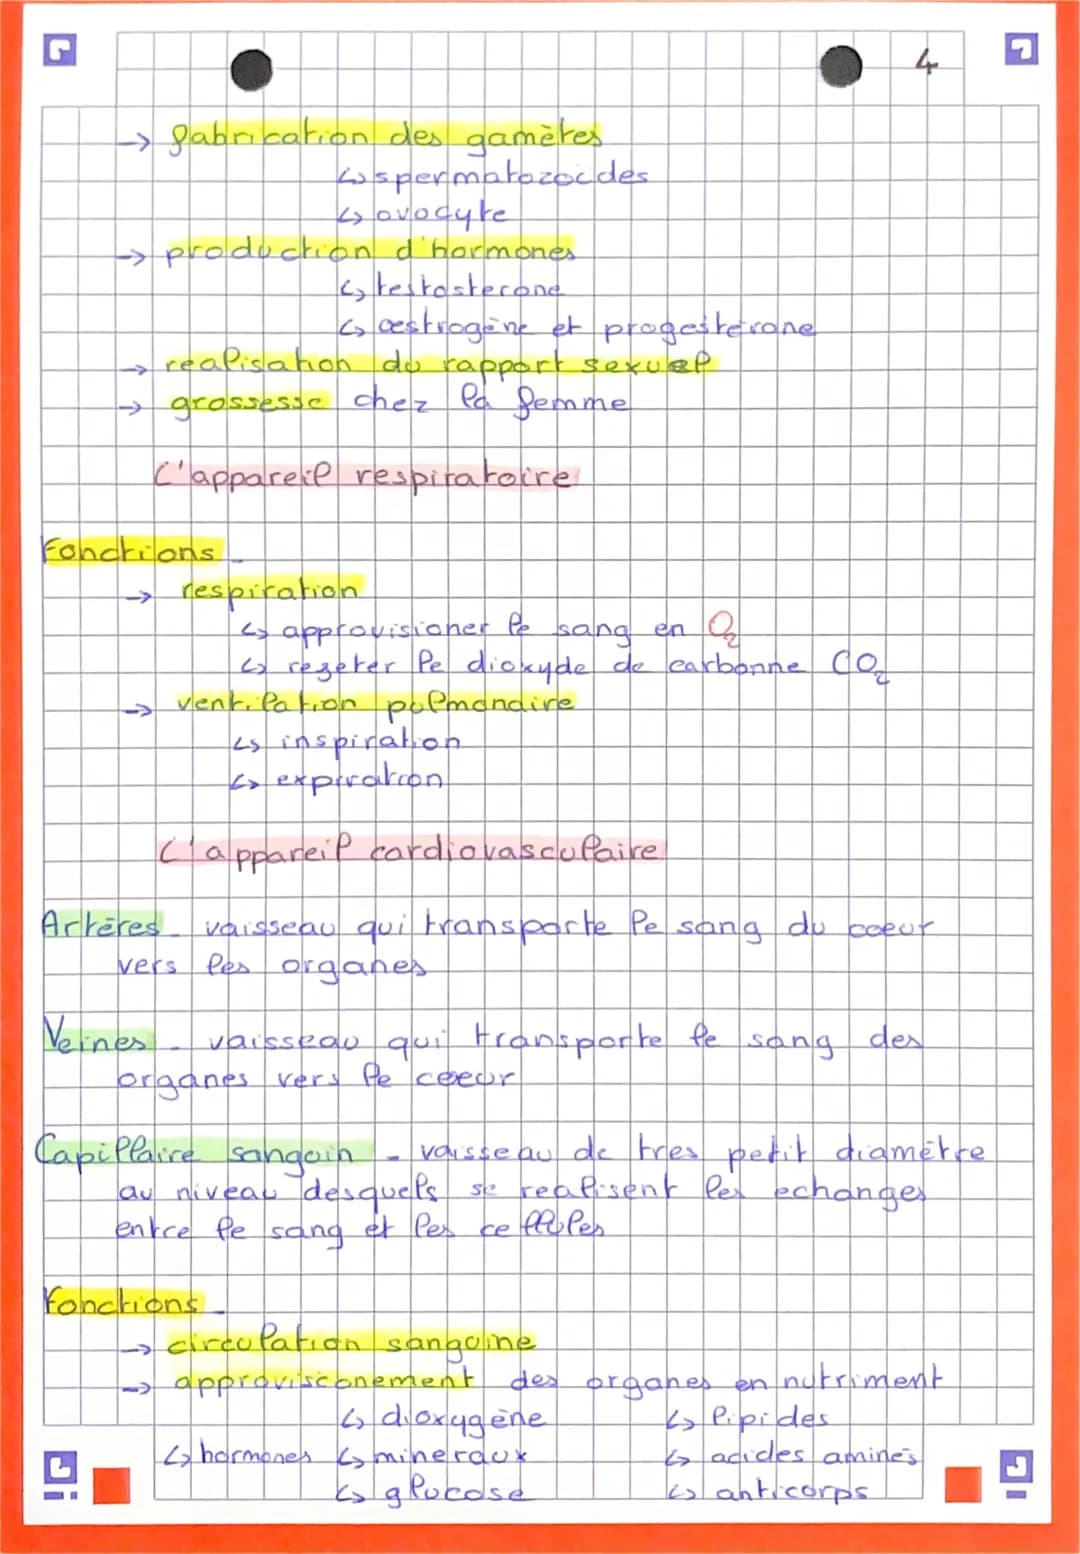 4
→ fabrication des gamètes
↳ spermatozoïdes
↳ ovocyte
→ production d'hormones
↳ testosterone
↳ œstrogène et progesterone
→ realisation du rapport sexuel
→ grossesse chez la femme
L'appareil respiratoire
Fonctions -
→ respiration
↳ approvisioner le sang en O₂
↳ rejeter le dioxyde de carbonne CO₂
→ ventilation pulmonaire
↳ inspiration
↳ expiration
L'appareil cardiovasculaire
Artères - vaisseau qui transporte le sang du coeur
vers les organes
Veines - vaisseau qui transporte le sang des
organes vers le coeur
Capillaire sanguin - vaisseau de tres petit diamètre
au niveau desquels se realisent les echanges
entre le sang et les cellules
Fonctions -
→ circulation sanguine
→ approvisionement des organes en nutriment
↳ dioxygène ↳ lipides
↳ hormones ↳ mineraux ↳ acides aminés
↳ glucose ↳ anticorps